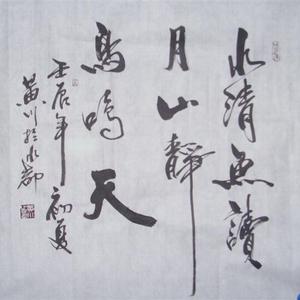 水清魚讀
月山靜
鳥鳴天
壬辰年初夏
黄川於水都